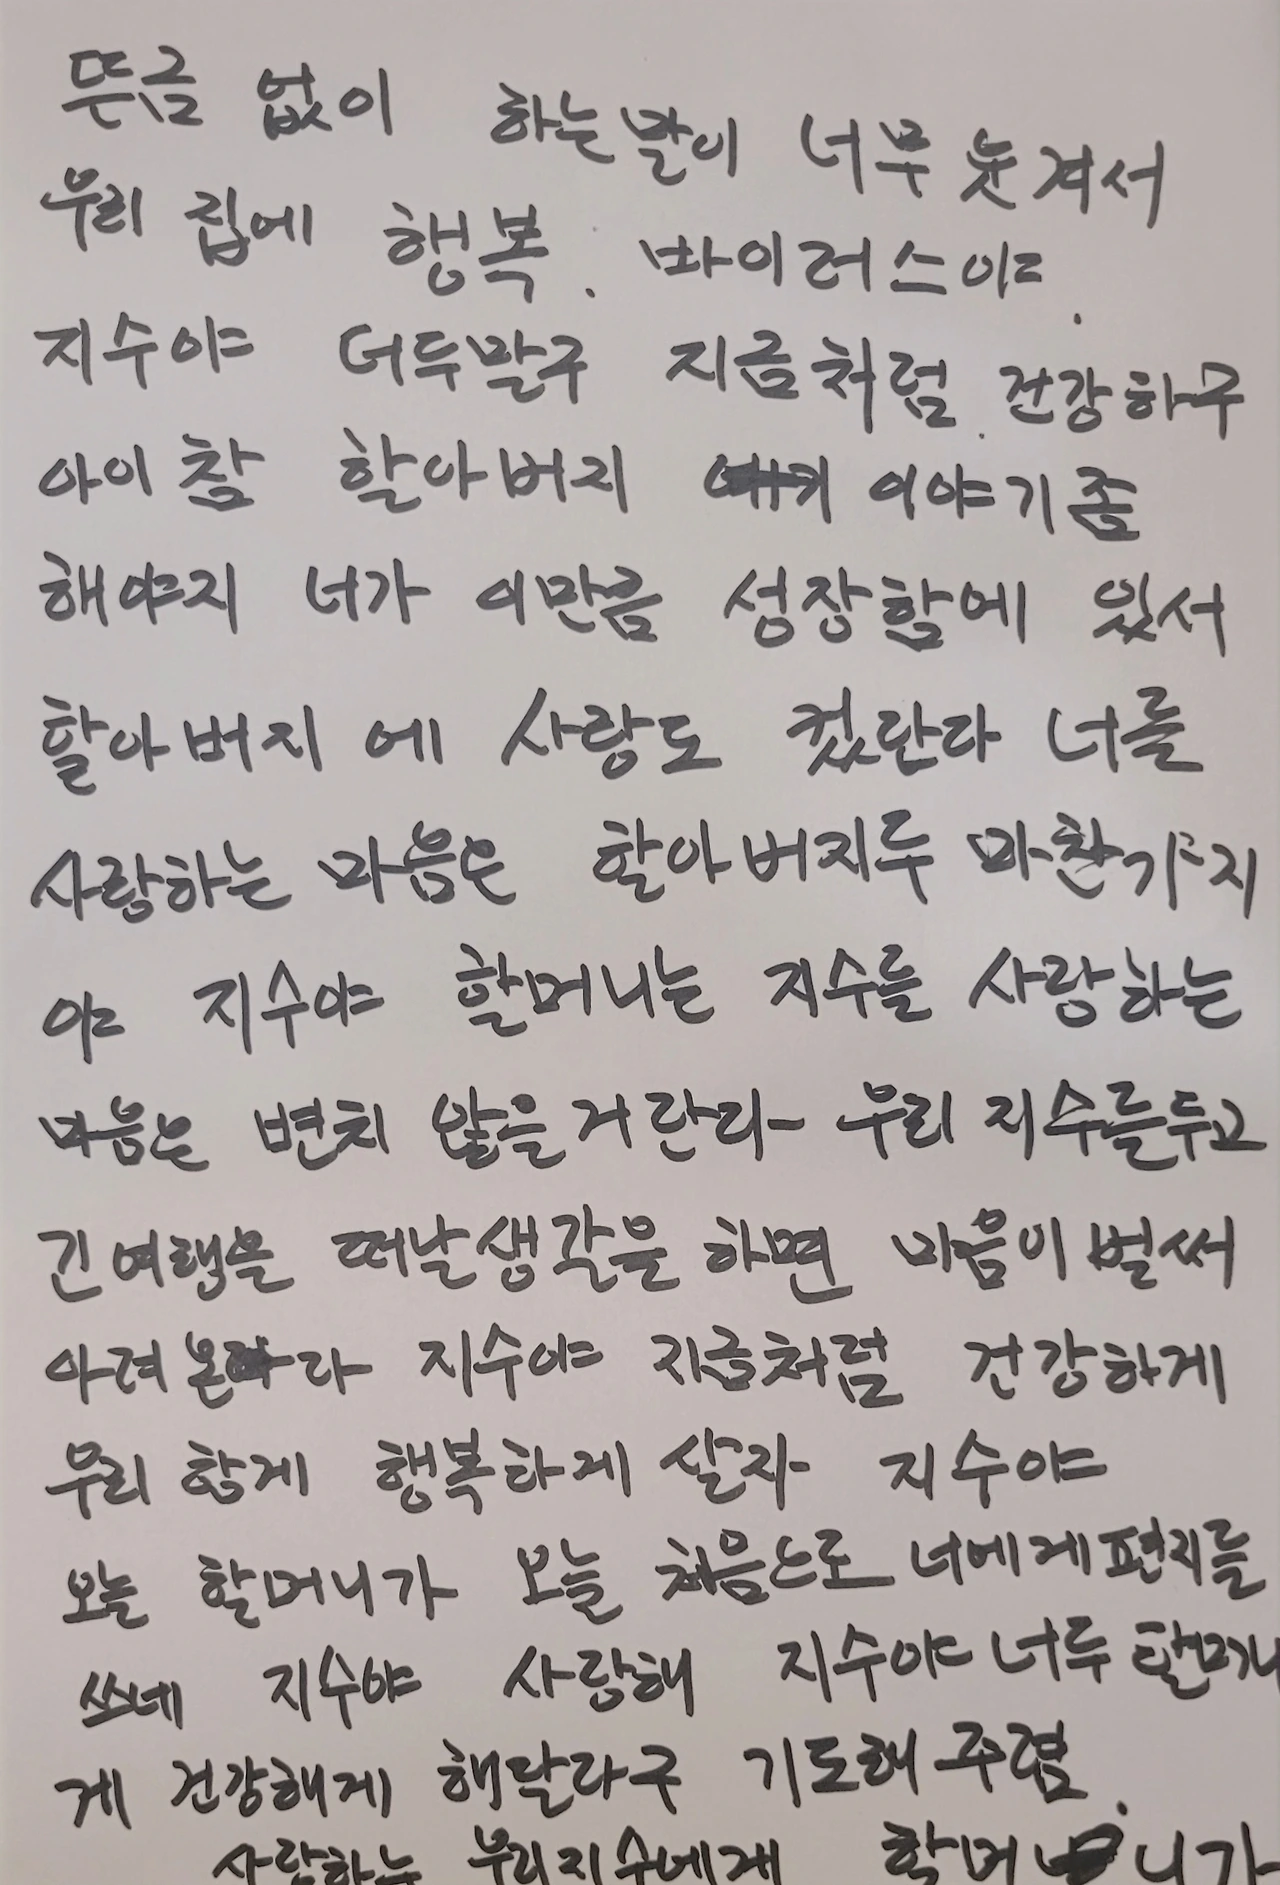 뜬금 없이 하는말이 너무 웃겨서
우리 집에 행복. 바이러스야.
지수야 더두말구 지금처럼 건강하구
아이참 할아버지 이야기좀
해야지 너가 이만큼 성장함에 있서
할아버지에 사랑도 컸란다 너를
사랑하는 마음은 할아버지두 마찬가지
야 지수야 할머니는 지수를 사랑하는
마음은 변치 않을거란다 우리 지수를두고
긴여행을 떠날생각을 하면 마음이벌써
아려온다 지수야 지금처럼 건강하게
우리 함게 행복하게 살자 지수야
오늘 할머니가 오늘 처음으로 너에게편지를
쓰네 지수야 사랑해 지수야 너두
게 건강해게 해달라구 기도해주렴.
사랑하는 우리지수에게 할머니가